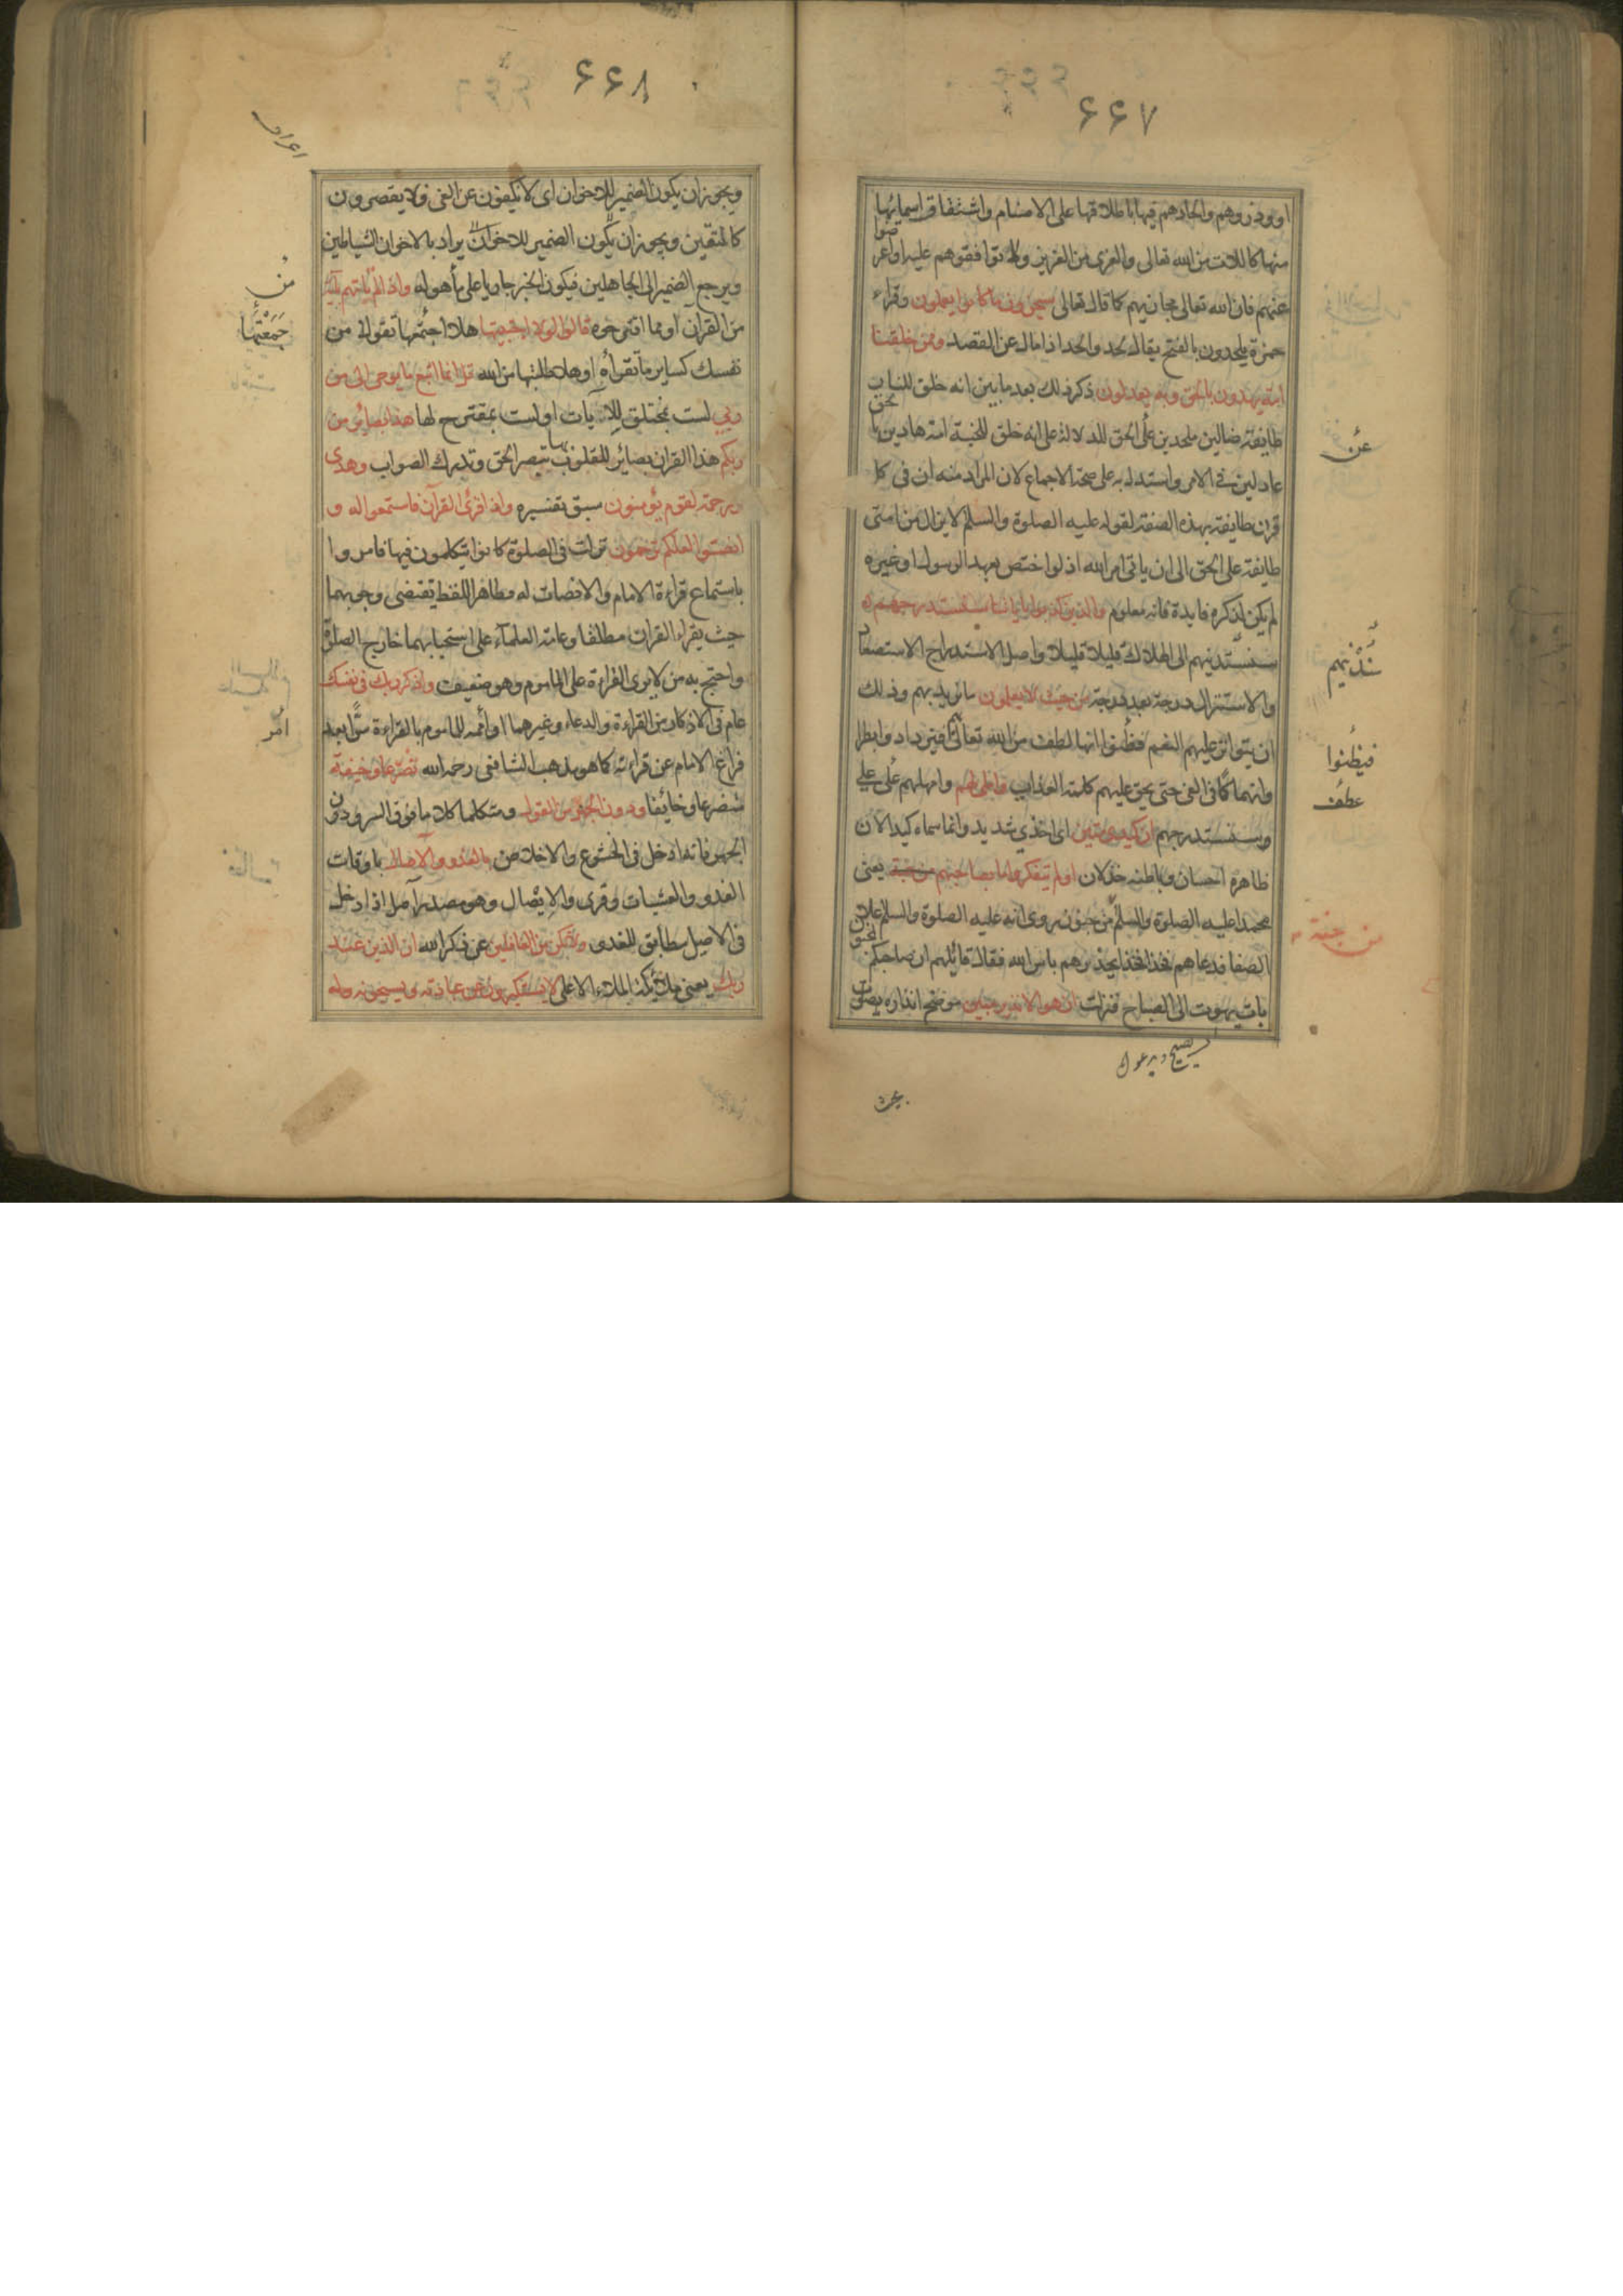 ۶۶۷
او وذروهم والحادهم فيها باطلاقها على الاصنام واشتقاق اسمائها
منها كاللات من الله تعالى والعزى من العزيز ولا توافقوهم عليه او اعر
ضوا
عنهم فان الله تعالى مجازيهم كما قال تعالى سيجزون ما كانوا يعملون وقراء
حمزة يلحدون بالفتح يقال لحد والحد اذا مال عن القصد وممن خلقنا
امة يهدون بالحق وبه يعدلون ذكر ذلك بعد ما بين انه خلق للنار
طايفة ضالين ملحدين على الحق للدلالة على انه خلق للجنة امة هادين با
لحق
عادلين في الامر واستدل به على صحة الاجماع لان المراد منه ان في كل
قرن طايفة بهذه الصفة لقوله عليه الصلوة والسلم لا يزال من امتى
طايفة على الحق الى ان ياتى امر الله اذ لو اختص بعهد الرسول او غيره
لم يكن لذكره فايدة فانه معلوم والذين كذبوا باياتنا سنستدرجهم
سنستدنيهم الى الهلاك قليلا قليلا واصل الاستدراج الاستصعاد
والاستنزال درجة بعد درجة من حيث لا يعلمون ما نريد بهم وذلك
ان يتواتر عليهم النعم فظنوا انها لطف من الله تعالى فيزدادوا بطرا
وانهماكا فى الغى حتى يحق عليهم كلمة العذاب واملى لهم وامهلهم على على
وسنستدرجهم ان كيدى متين اى اخذى شديد وانما سماه كيدا لان
ظاهره احسان وباطنه خذلان اولم يتفكروا ما بصاحبهم من جنة يعنى
محمدا عليه الصلوة والسلم من جنون روى انه عليه الصلوة والسلم علا
الصفا فدعاهم فخذا فخذا يحذرهم باس الله فقال قائلهم ان صاحبكم
لمجنون
بات يهوت الى الصباح فنزلت ان هو الا نذير مبين موضح انذاره بحيث
عن
نذنيهم
فيظنوا
عطف
من جنة
۶۶۸
ويجوز ان يكون الضمير للاخوان اى لا يكفون عن الغى ولا يقصرون
كالمتقين ويجوز ان يكون الضمير للاخوان يراد بالاخوان الشياطين
ويرجع الضمير الى الجاهلين فيكون الخبر جاريا على ما هو له واذا لم تاتهم بآية
من القرآن او مما اقترحوه قالوا لولا اجتبيتها هلا اجتمعتها تقولا من
نفسك كساير ما تقرأه او هلا طلبتها من الله قل انما اتبع ما يوحى الى من
ربى لست بمختلق للايات او لست بمقترح لها هذا بصائر من
ربكم هذا القران بصائر للقلوب بها تبصر الحق وتدرك الصواب وهدى
ورحمة لقوم يؤمنون سبق تفسيره واذا قرئ القرآن فاستمعوا له و
انصتوا لعلكم ترحمون نزلت فى الصلوة كانوا يتكلمون فيها فامروا
باستماع قراءة الامام والانصات له وظاهر اللفظ يقتضى وجوبهما
حيث يقراء القران مطلقا وعامة العلماء على استحبابهما خارج الصلوة
واحتج به من لا يرى القراءة على الماموم وهو ضعيف واذكر ربك فى نفسك
عام فى الاذكار من القراءة والدعاء وغيرهما او أمر للماموم بالقراءة سرا بعد
فراغ الامام عن قراءته كما هو مذهب الشافعى رحمه الله تضرعا وخيفة
متضرعا وخائفا ودون الجهر من القول ومتكلما كلاما فوق السر ودون
الجهر فانه ادخل فى الخشوع والاخلاص بالغدو والآصال باوقات
الغدو والعشيات وقرى والايصال وهو مصدر آصل اذا دخل
فى الاصيل مطابق للغدو ولا تكن من الغافلين عن ذكر الله ان الذين عند
ربك يعنى ملائكة الملاء الاعلى لا يستكبرون عن عبادته ويسبحونه وله
من
جمعتها
أمر